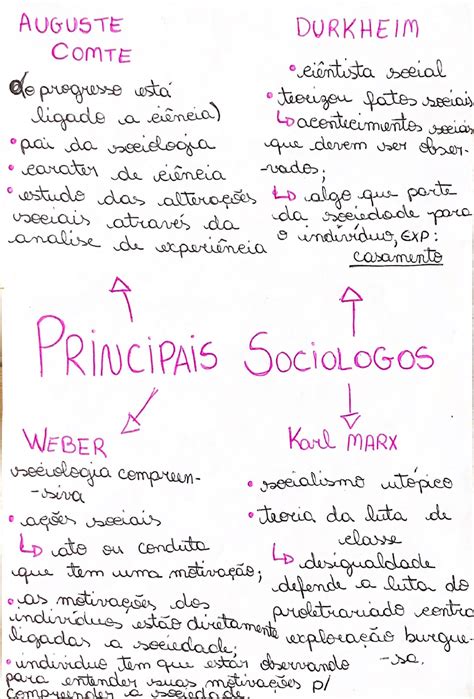 AUGUSTE
COMTE
(o progresso está
ligado a ciência)
• pai da sociologia
• carater de ciência
• estudo das alterações
sociais através da
analise de experiência
DURKHEIM
• ciêntista social
• teorizou fatos sociais
↳ acontecimentos sociais
que devem ser obser-
-vados;
↳ algo que parte
da sociedade para
o indivíduo, EXP:
casamento
PRINCIPAIS SOCIOLOGOS
WEBER
sociologia compreen-
-siva
• ações sociais
↳ ato ou conduta
que tem uma motivação;
• as motivações dos
indivíduos estão diretamente
ligadas a sociedade;
• indivíduo tem que estar observando
para entender suas motivações p/
compreender a sociedade.
Karl MARX
• socialismo utópico
• teoria da luta de
classe
↳ desigualdade
defende a luta do
proletrariado contra
exploração burgue-
-sa.